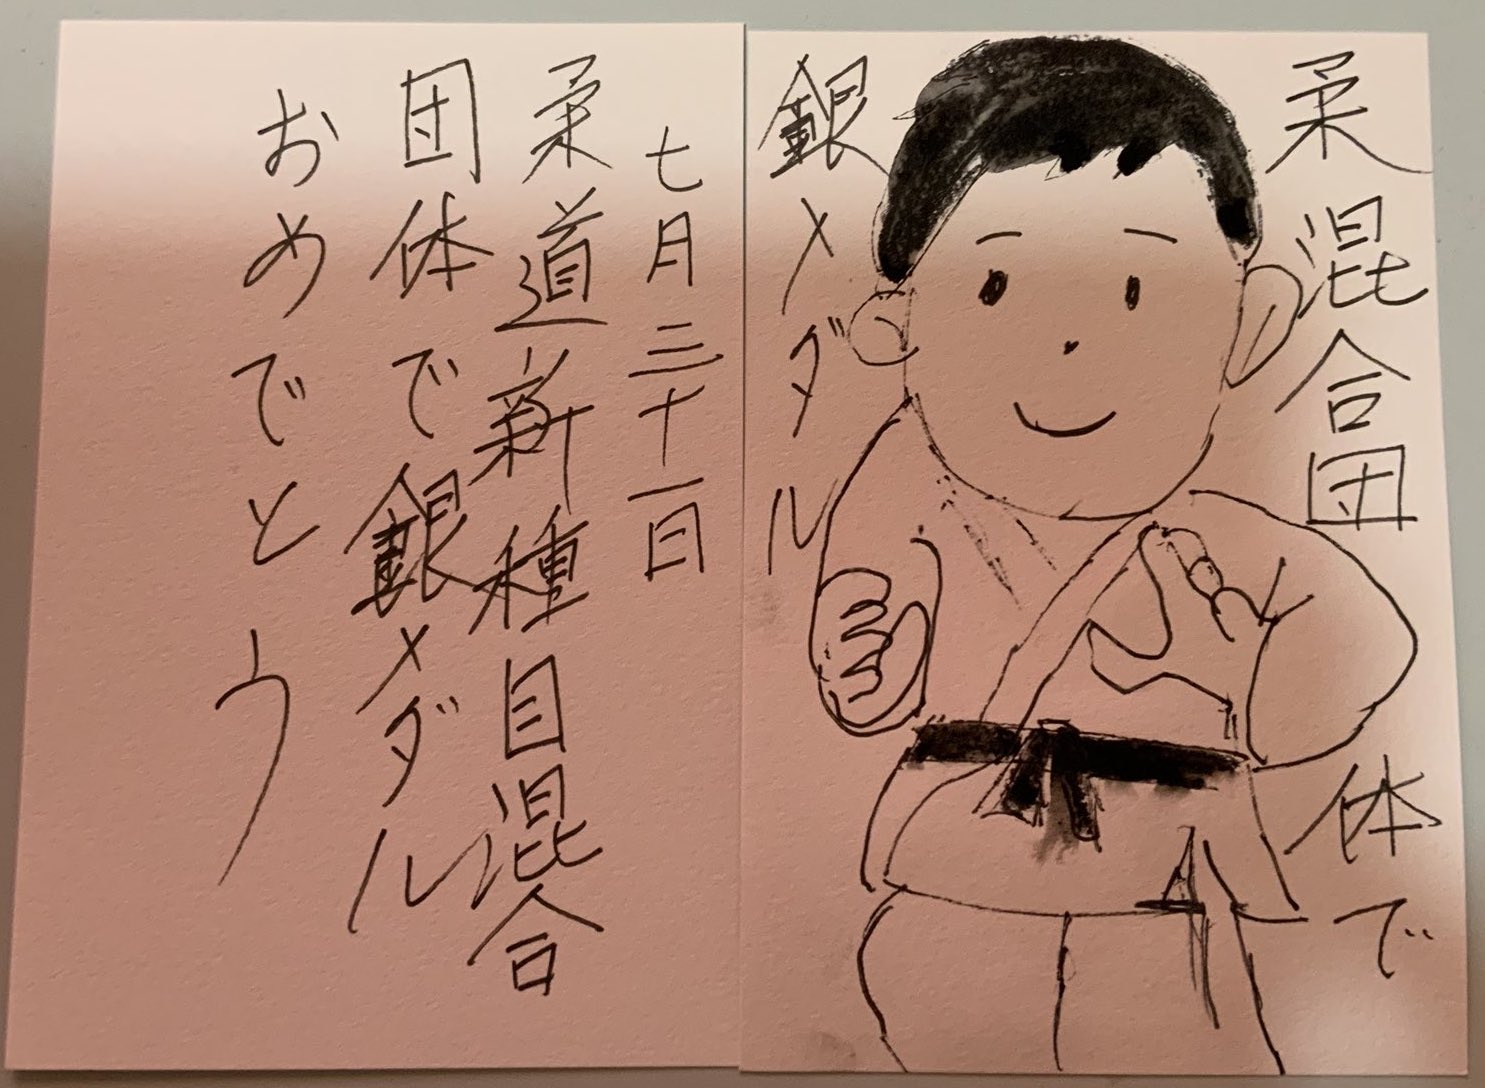 柔混合団体で
銀メダル
七月三十一日
柔道新種目混合
団体で銀メダル
おめでとう